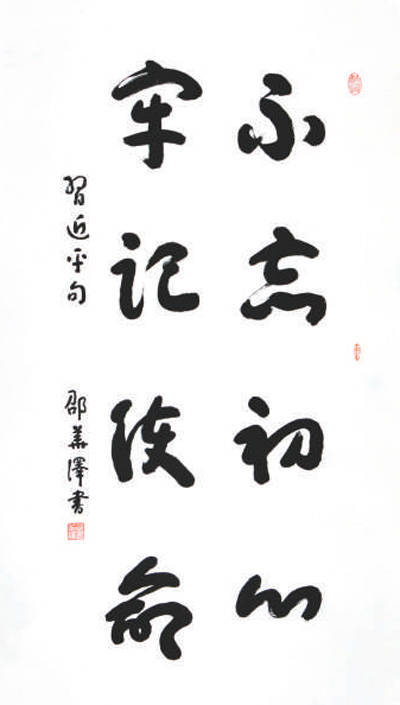 不忘初心
牢记使命
習近平句
邵華澤書